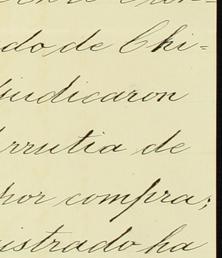 do de Chi=
judicaron
rrutia de
por compra;
istrado ha